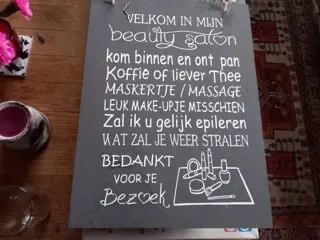 WELKOM IN MIJN
beauty salon
kom binnen en ont pan
Koffie of liever Thee
MASKERTJE / MASSAGE
LEUK MAKE-UPJE MISSCHIEN
Zal ik u gelijk epileren
WAT ZAL JE WEER STRALEN
BEDANKT
VOOR JE
Bezoek